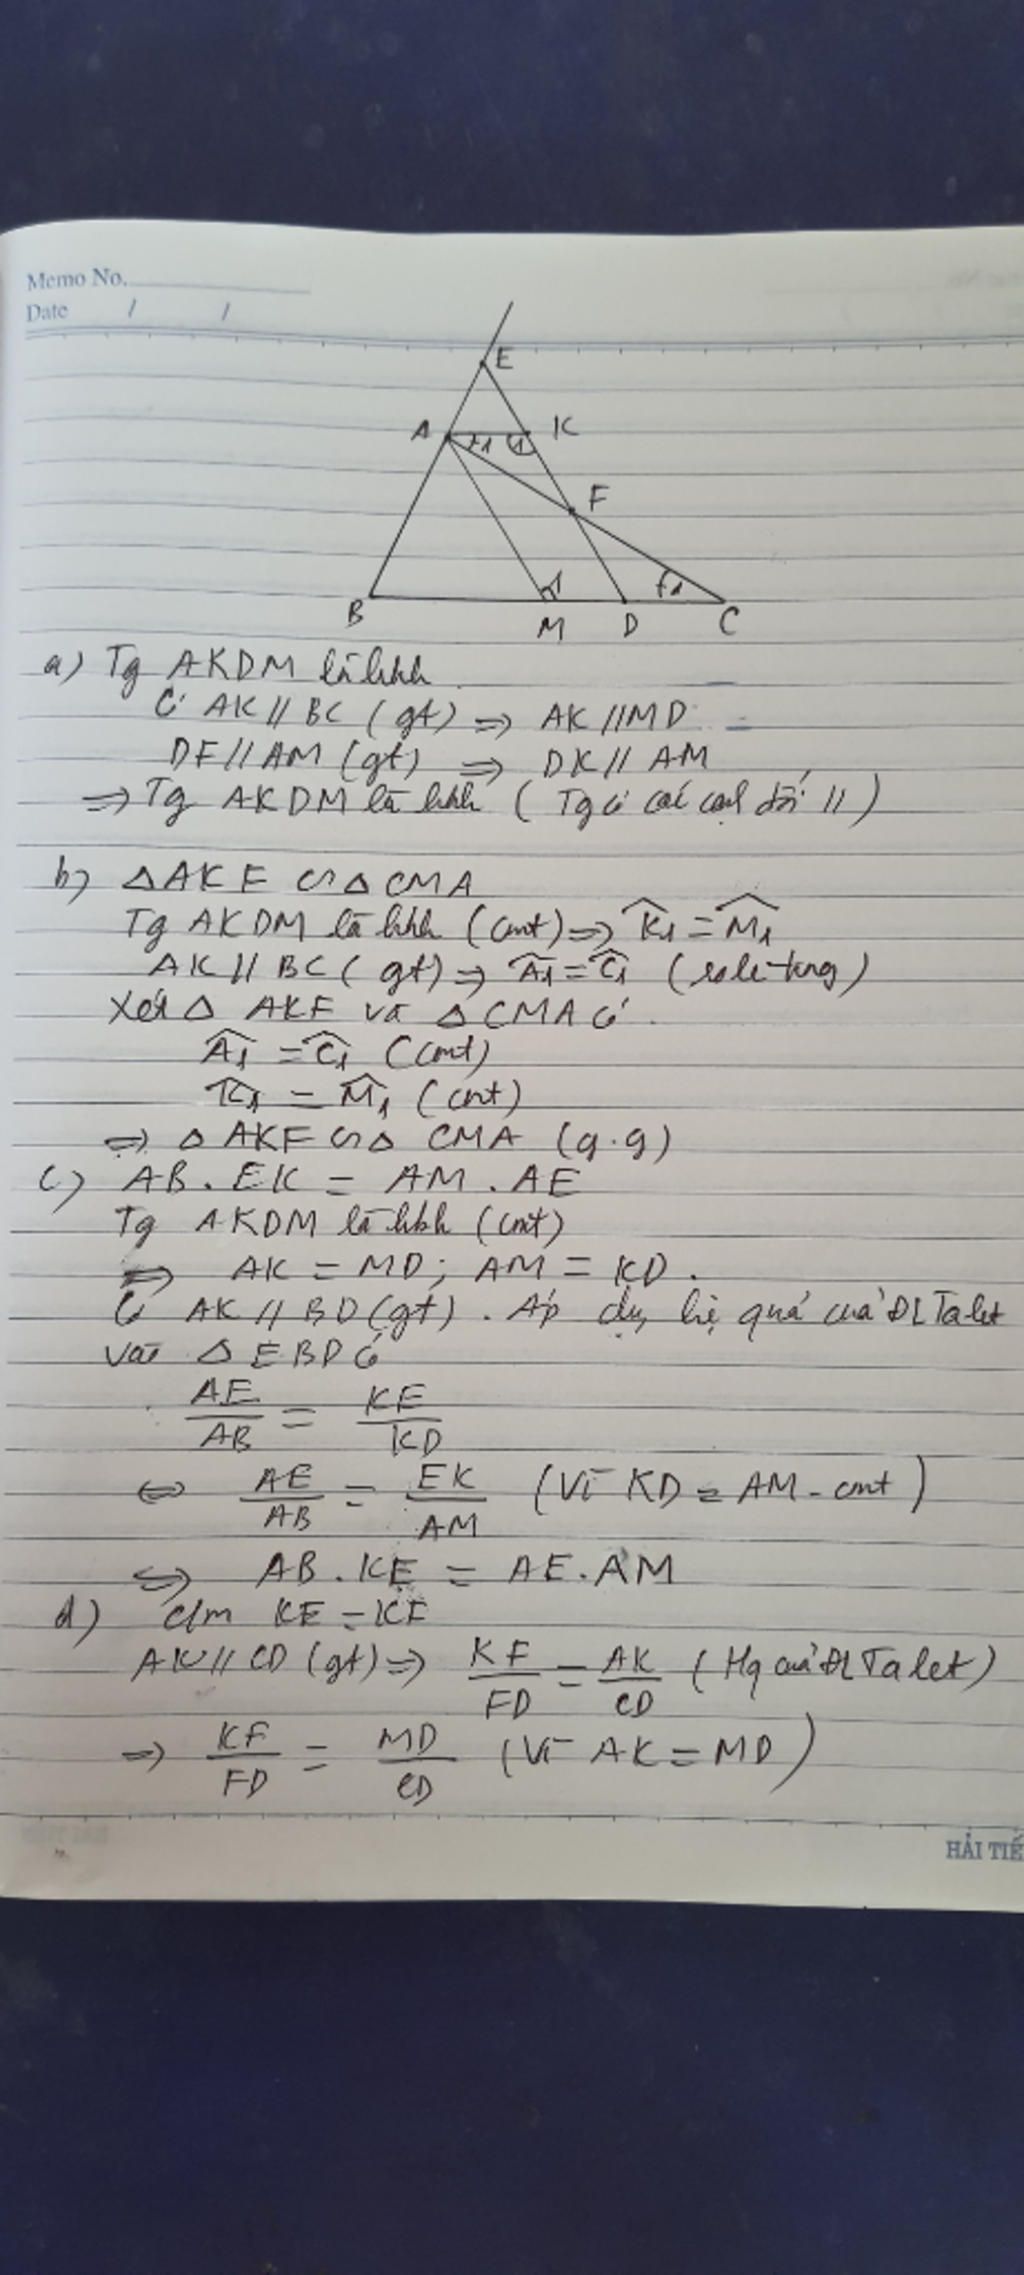 Memo No.
Date / /
E
A 1 1 K
F
1 1
B M D C
a) Tg AKDM là hbh
Có AK // BC (gt) => AK // MD
DF // AM (gt) => DK // AM
=> Tg AKDM là hbh (Tg có các cạnh đối //)
b) △AKF ∽ △CMA
Tg AKDM là hbh (cmt) => K̂1 = M̂1
AK // BC (gt) => Â1 = Ĉ1 (sole-trong)
Xét △ AKF và △ CMA có
Â1 = Ĉ1 (cmt)
K̂1 = M̂1 (cmt)
=> △ AKF ∽ △ CMA (g.g)
c) AB . EK = AM . AE
Tg AKDM là hbh (cmt)
=> AK = MD; AM = KD.
Có AK // BD (gt). Áp dụng hệ quả của ĐL Talet
vào △ EBD có
AE/AB = KE/KD
<=> AE/AB = EK/AM (Vì KD = AM - cmt)
<=> AB . KE = AE . AM
d) c/m KE = KF
AK // CD (gt) => KF/FD = AK/CD (Hq của ĐL Talet)
=> KF/FD = MD/CD (Vì AK = MD)
HẢI TIẾ